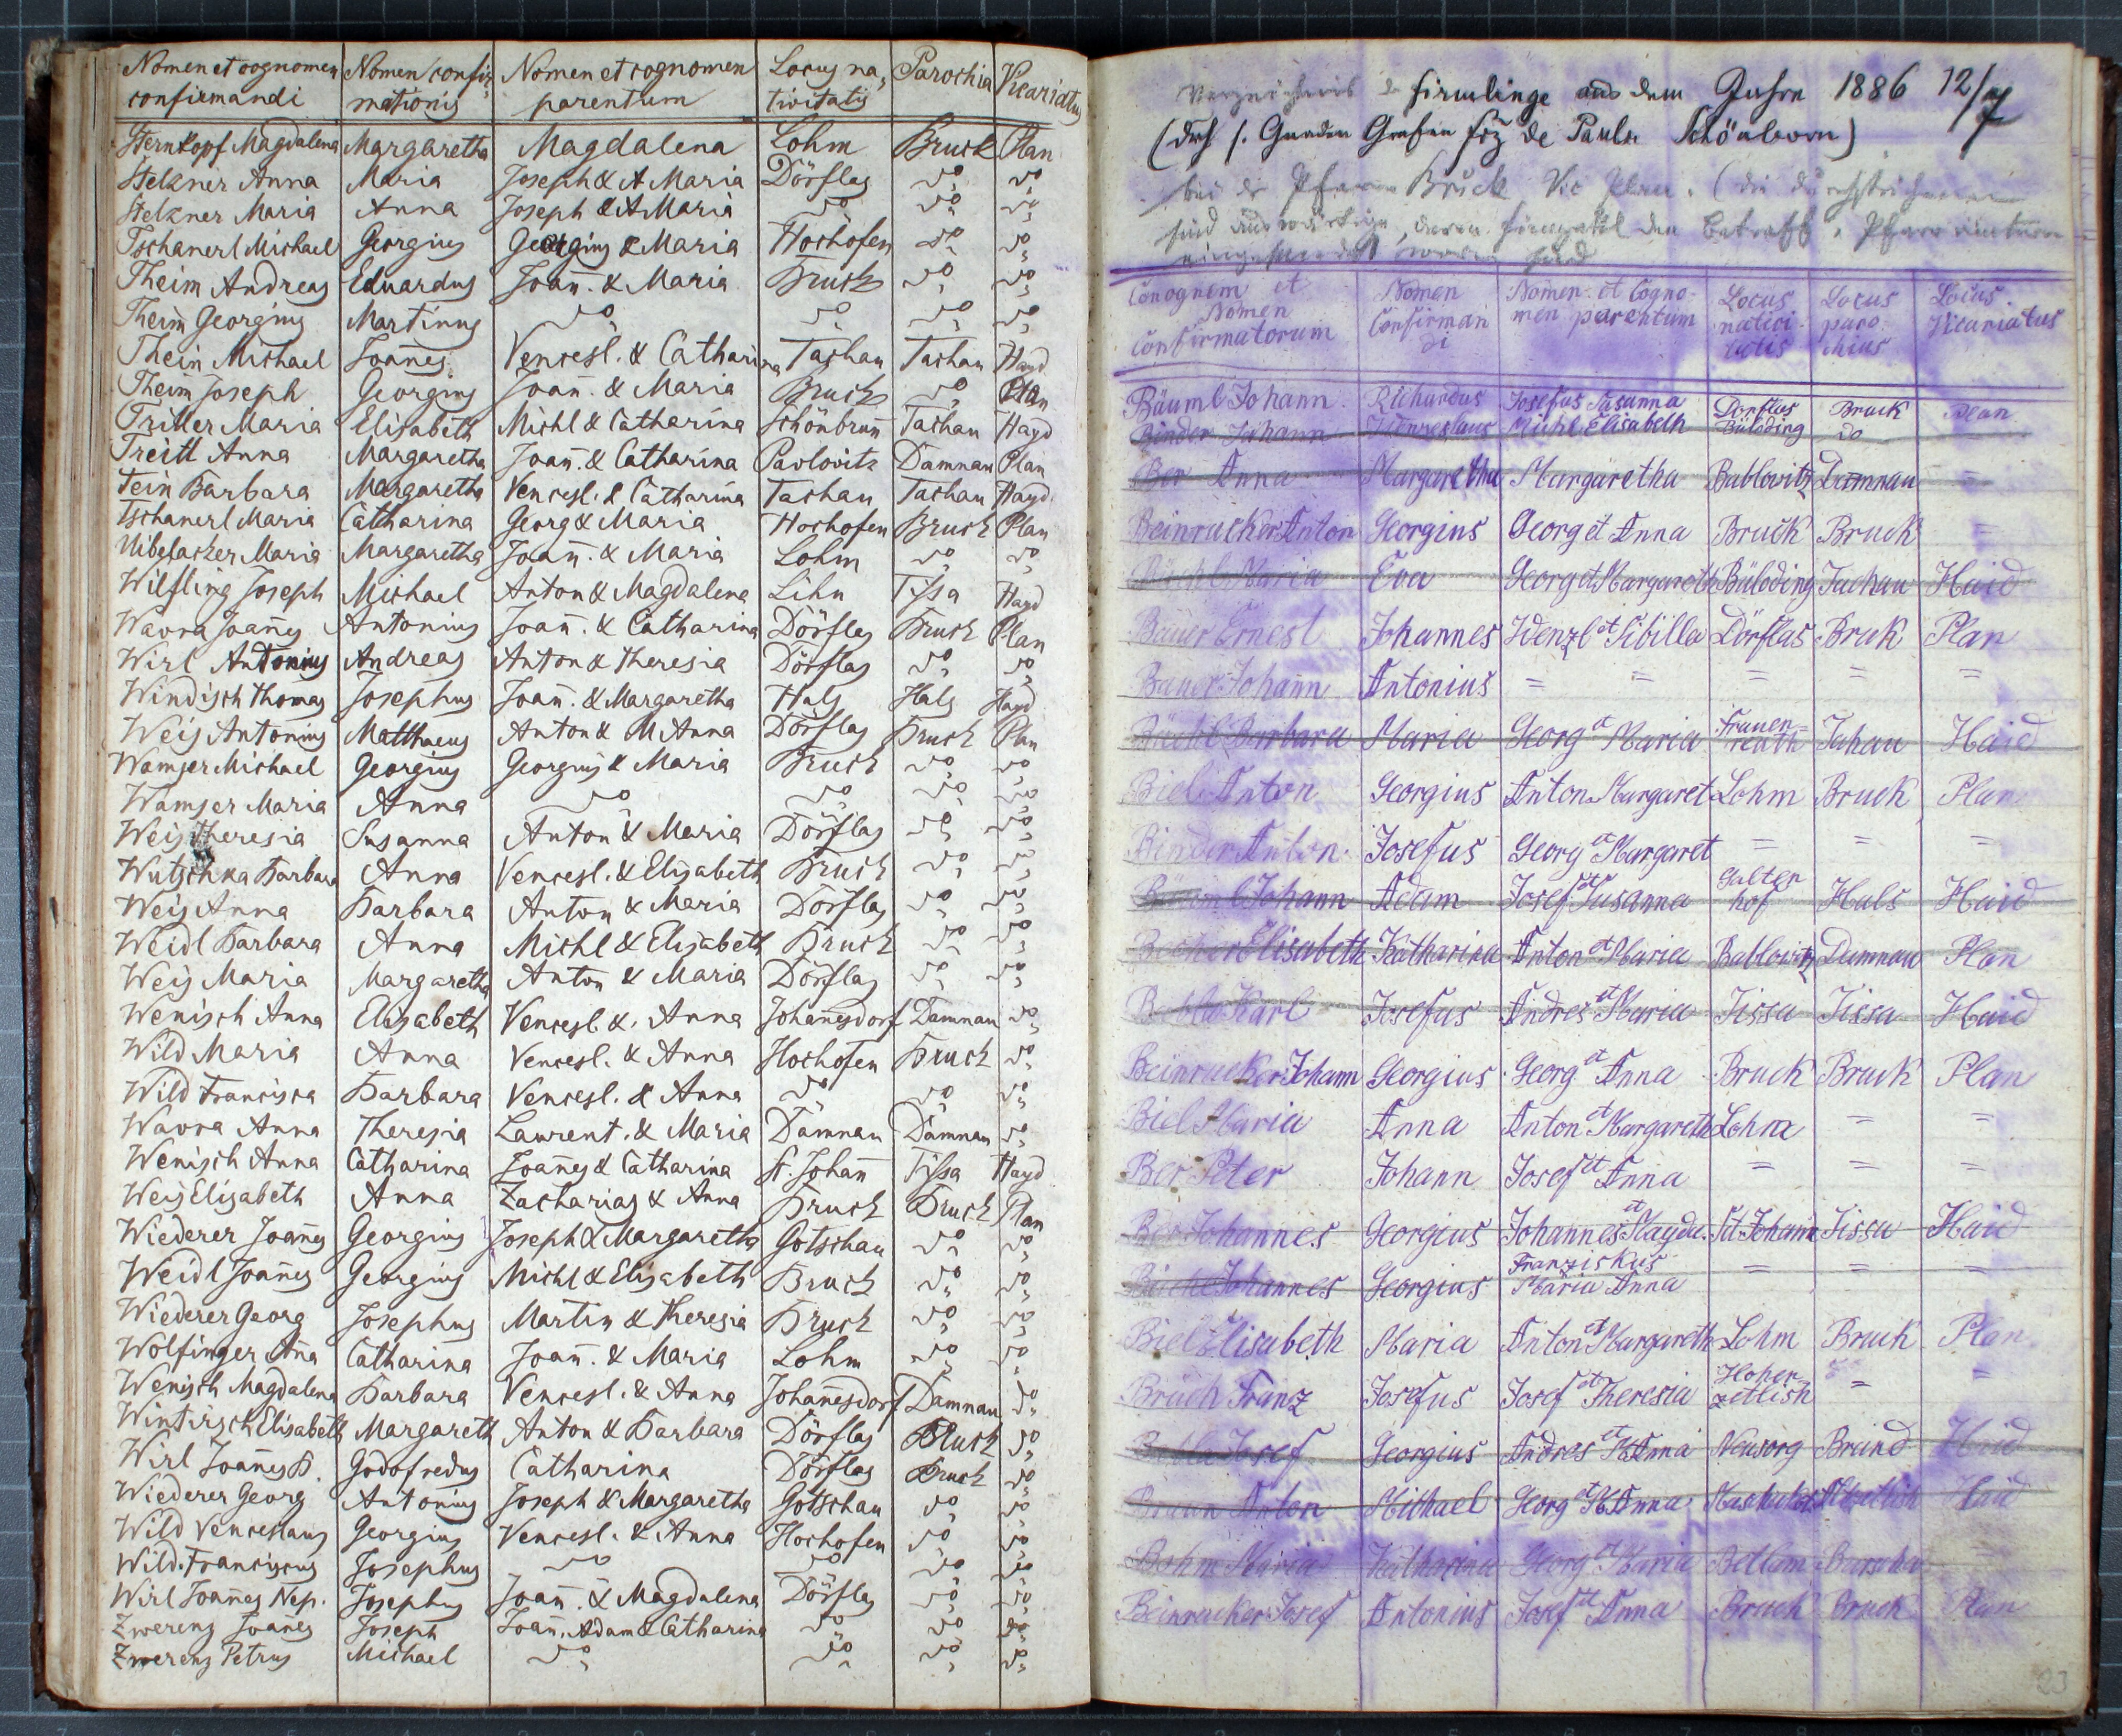 Nomen et cognomen confirmandi Nomen confirmationis Nomen et cognomen parentum Locus nativitatis Parochia Vicariatus
Sternkopf Magdalena Margaretha Magdalena Lohm Bruck Plan
Stelzner Anna Maria Joseph & A Maria Dörflas do do
Stelzner Maria Anna Joseph & A Maria do do do
Tschanerl Michael Georgius Georgius & Maria Hochofen do do
Theim Andreas Eduardus Joan̄. & Maria Bruck do do
Theim Georgius Martinus do do do do
Thein Michael Joan̄es Vencesl. & Catharina Tachau Tachau Hayd
Theim Joseph Georgius Joan̄. & Maria Bruck do Plan
Triller Maria Elisabeth Michl & Catharina Schönbrun̄ Tachau Hayd
Treitl Anna Margaretha Joan̄. & Catharina Pavlovitz Damnau Plan
Tein Barbara Margaretha Vencesl. & Catharina Tachau Tachau Hayd
Tschanerl Maria Catharina Georg & Maria Hochofen Bruck Plan
Uibelacker Maria Margaretha Joan̄. & Maria Lohm do do
Wilfling Joseph Michael Anton & Magdalena Lihn Tissa Hayd
Wavra Joan̄es Antonius Joan̄. & Catharina Dörflas Bruck Plan
Wirl Antonius Andreas Anton & Theresia Dörflas do do
Windisch Thomas Josephus Joan̄. & Margaretha Hals Hals Hayd
Weis Antonius Matthaeus Anton & M Anna Dörflas Bruck Plan
Wamser Michael Georgius Georgius & Maria Bruck do do
Wamser Maria Anna do do do do
Weis Theresia Susanna Anton & Maria Dörflas do do
Wutschka Barbara Anna Vencesl. & Elisabeth Bruck do do
Weis Anna Barbara Anton & Maria Dörflas do do
Weidl Barbara Anna Michl & Elisabeth Bruck do do
Weis Maria Margaretha Anton & Maria Dörflas do do
Wenisch Anna Elisabeth Vencesl. & Anna Johan̄esdorf Damnau do
Wild Maria Anna Vencesl. & Anna Hochofen Bruck do
Wild Francisca Barbara Vencesl. & Anna do do do
Wavra Anna Theresia Laurent. & Maria Damnau Damnau do
Wenisch Anna Catharina Joan̄es & Catharina St. Johan̄ Tissa Hayd
Weis Elisabeth Anna Zacharias & Anna Bruck Bruck Plan
Wiederer Joan̄es Georgius Joseph & Margaretha Gotschau do do
Weidl Joan̄es Georgius Michl & Elisabeth Bruck do do
Wiederer Georg Josephus Martin & Theresia Bruck do do
Wolfinger An̄a Catharina Joan̄. & Maria Lohm do do
Wenisch Magdalena Barbara Vencesl. & Anna Johan̄esdorf Damnau do
Wintirsch Elisabeth Margareth Anton & Barbara Dörflas Bruck do
Wirl Joan̄es B. Godofredus Catharina Dörflas Bruck do
Wiederer Georg Antonius Joseph & Margaretha Gotschau do do
Wild Venceslaus Georgius Vencesl. & Anna Hochofen do do
Wild Franciscus Josephus do do do do
Wirl Joan̄es Nep. Josephus Joan̄. & Magdalena Dörflas do do
Zwerenz Joan̄es Joseph Joan̄. Adam & Catharina do do do
Zwerenz Petrus Michael do do do do
Verzeichnis der Firmlinge aus dem Jahre 1886 12/7
(durch s. Gnaden Grafen Frz de Paula Schönborn)
bei der Pfarre Bruck Vic Plan. (die durchstrichenen
sind auswärtige, deren Firmzettel den betreff. Pfarrämtern
eingesendet worden sind
Conognem et Nomen Confirmatorum Nomen Confirmandi Nomen et Cognomen parentum Locus nativitatis Locus parochius Locus Vicariatus
Bäuml Johann Richardus Josefus Susanna Dörflas Bruck Plan
Binder Johann Wenzeslaus Michl. Elisabeth Büloding do
Ber Anna Margaretha Margaretha Bablovitz Damnau =
Beinrucker Anton Georgius Georg et Anna Bruck Bruck =
Maria Eva Georg et Margareth Büloding Tachau Haid
Bauer Ernest Johannes Wenzl et Sibilla Dörflas Bruk Plan
Bauer Johann Antonius = = = = =
Barbara Maria Georg et Maria Frauenreath Tahau Haid
Biel Anton Georgius Anton Margaret Lohm Bruck Plan
Binder Anton Josefus Georg et Margaret = = =
Johann Adam Josef et Susanna Galtenhof Hals Haid
Elisabeth Katharina Anton et Maria Bablowitz Damnau Plan
Karl Josefus Andres et Maria Tissa Tissa Haid
Beinrucker Johann Georgius Georg et Anna Bruck Bruck Plan
Biel Maria Anna Anton et Margareth Lohm = =
Ber Peter Johann Josef et Anna = = =
Ber Johannes Georgius Johannes et Magda. St. Johann Tissa Haid
Johannes Georgius Franziskus Maria Anna = = =
Biel Elisabeth Maria Anton et Margareth Lohm Bruck Plan
Bruch Franz Josefus Josef et Theresia Hohenzetlish = =
Josef Georgius Andres et M Anna Neusorg Bründ Haid
Braun Anton Michael Georg et M Anna Haid
Böhm Maria Katharina Georg et Maria Betlem
Beinrucker Josef Antonius Josef et Anna Bruck Bruck Plan
23